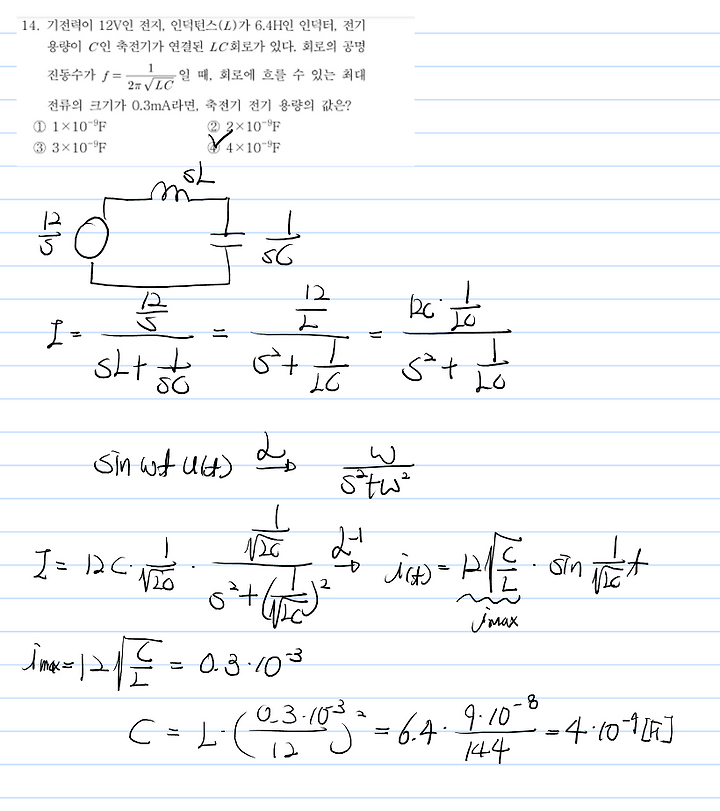 14. 기전력이 12V인 전지, 인덕턴스(L)가 6.4H인 인덕터, 전기
용량이 C인 축전기가 연결된 LC회로가 있다. 회로의 공명
진동수가 f = 1/(2π√LC) 일 때, 회로에 흐를 수 있는 최대
전류의 크기가 0.3mA라면, 축전기 전기 용량의 값은?
① 1×10⁻⁹F ② 2×10⁻⁹F
③ 3×10⁻⁹F ④ 4×10⁻⁹F
sL
12/s
1/sC
I = (12/s)/(sL + 1/sC) = (12/L)/(s² + 1/LC) = (12C · 1/LC)/(s² + 1/LC)
sin wt u(t) ℒ→ w/(s²+w²)
I = 12C · 1/√LC · (1/√LC)/(s² + (1/√LC)²) ℒ⁻¹→ i(t) = 12√(C/L) · sin 1/√LC t
imax
imax = 12√(C/L) = 0.3·10⁻³
C = L·(0.3·10⁻³/12)² = 6.4 · 9·10⁻⁸/144 = 4·10⁻⁹[F]